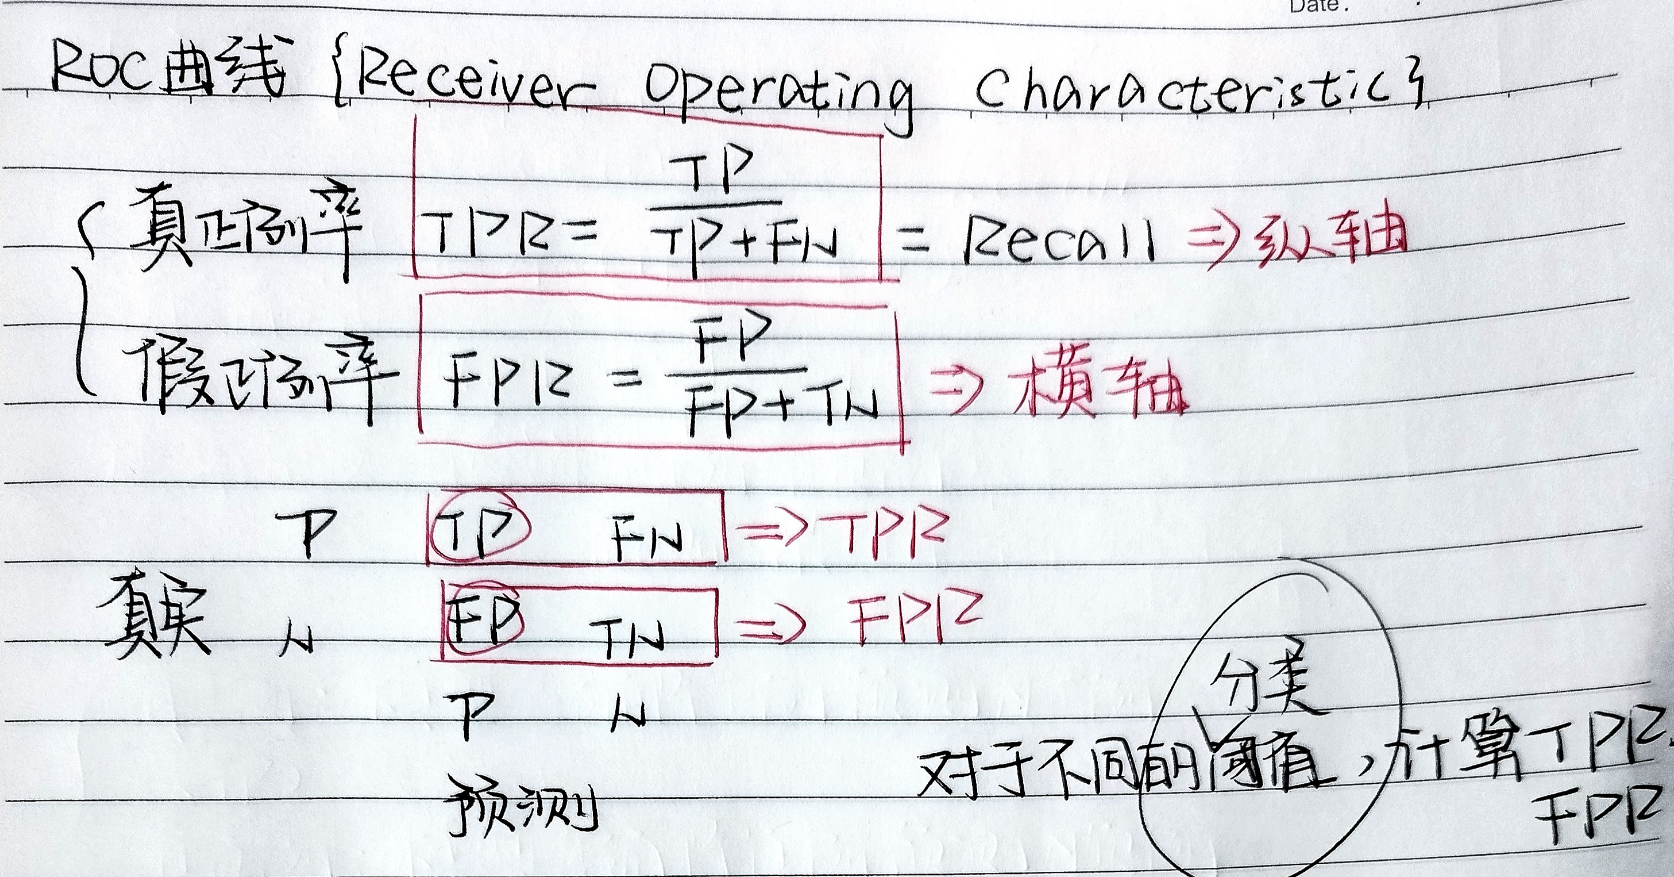 Date.
ROC曲线 {Receiver Operating Characteristic}
真正例率 TPR = TP / TP+FN = Recall ⇒ 纵轴
假正例率 FPR = FP / FP+TN ⇒ 横轴
P TP FN => TPR
真实 N FP TN => FPR
P N
预测
分类
对于不同的阈值，计算TPR.
FPR